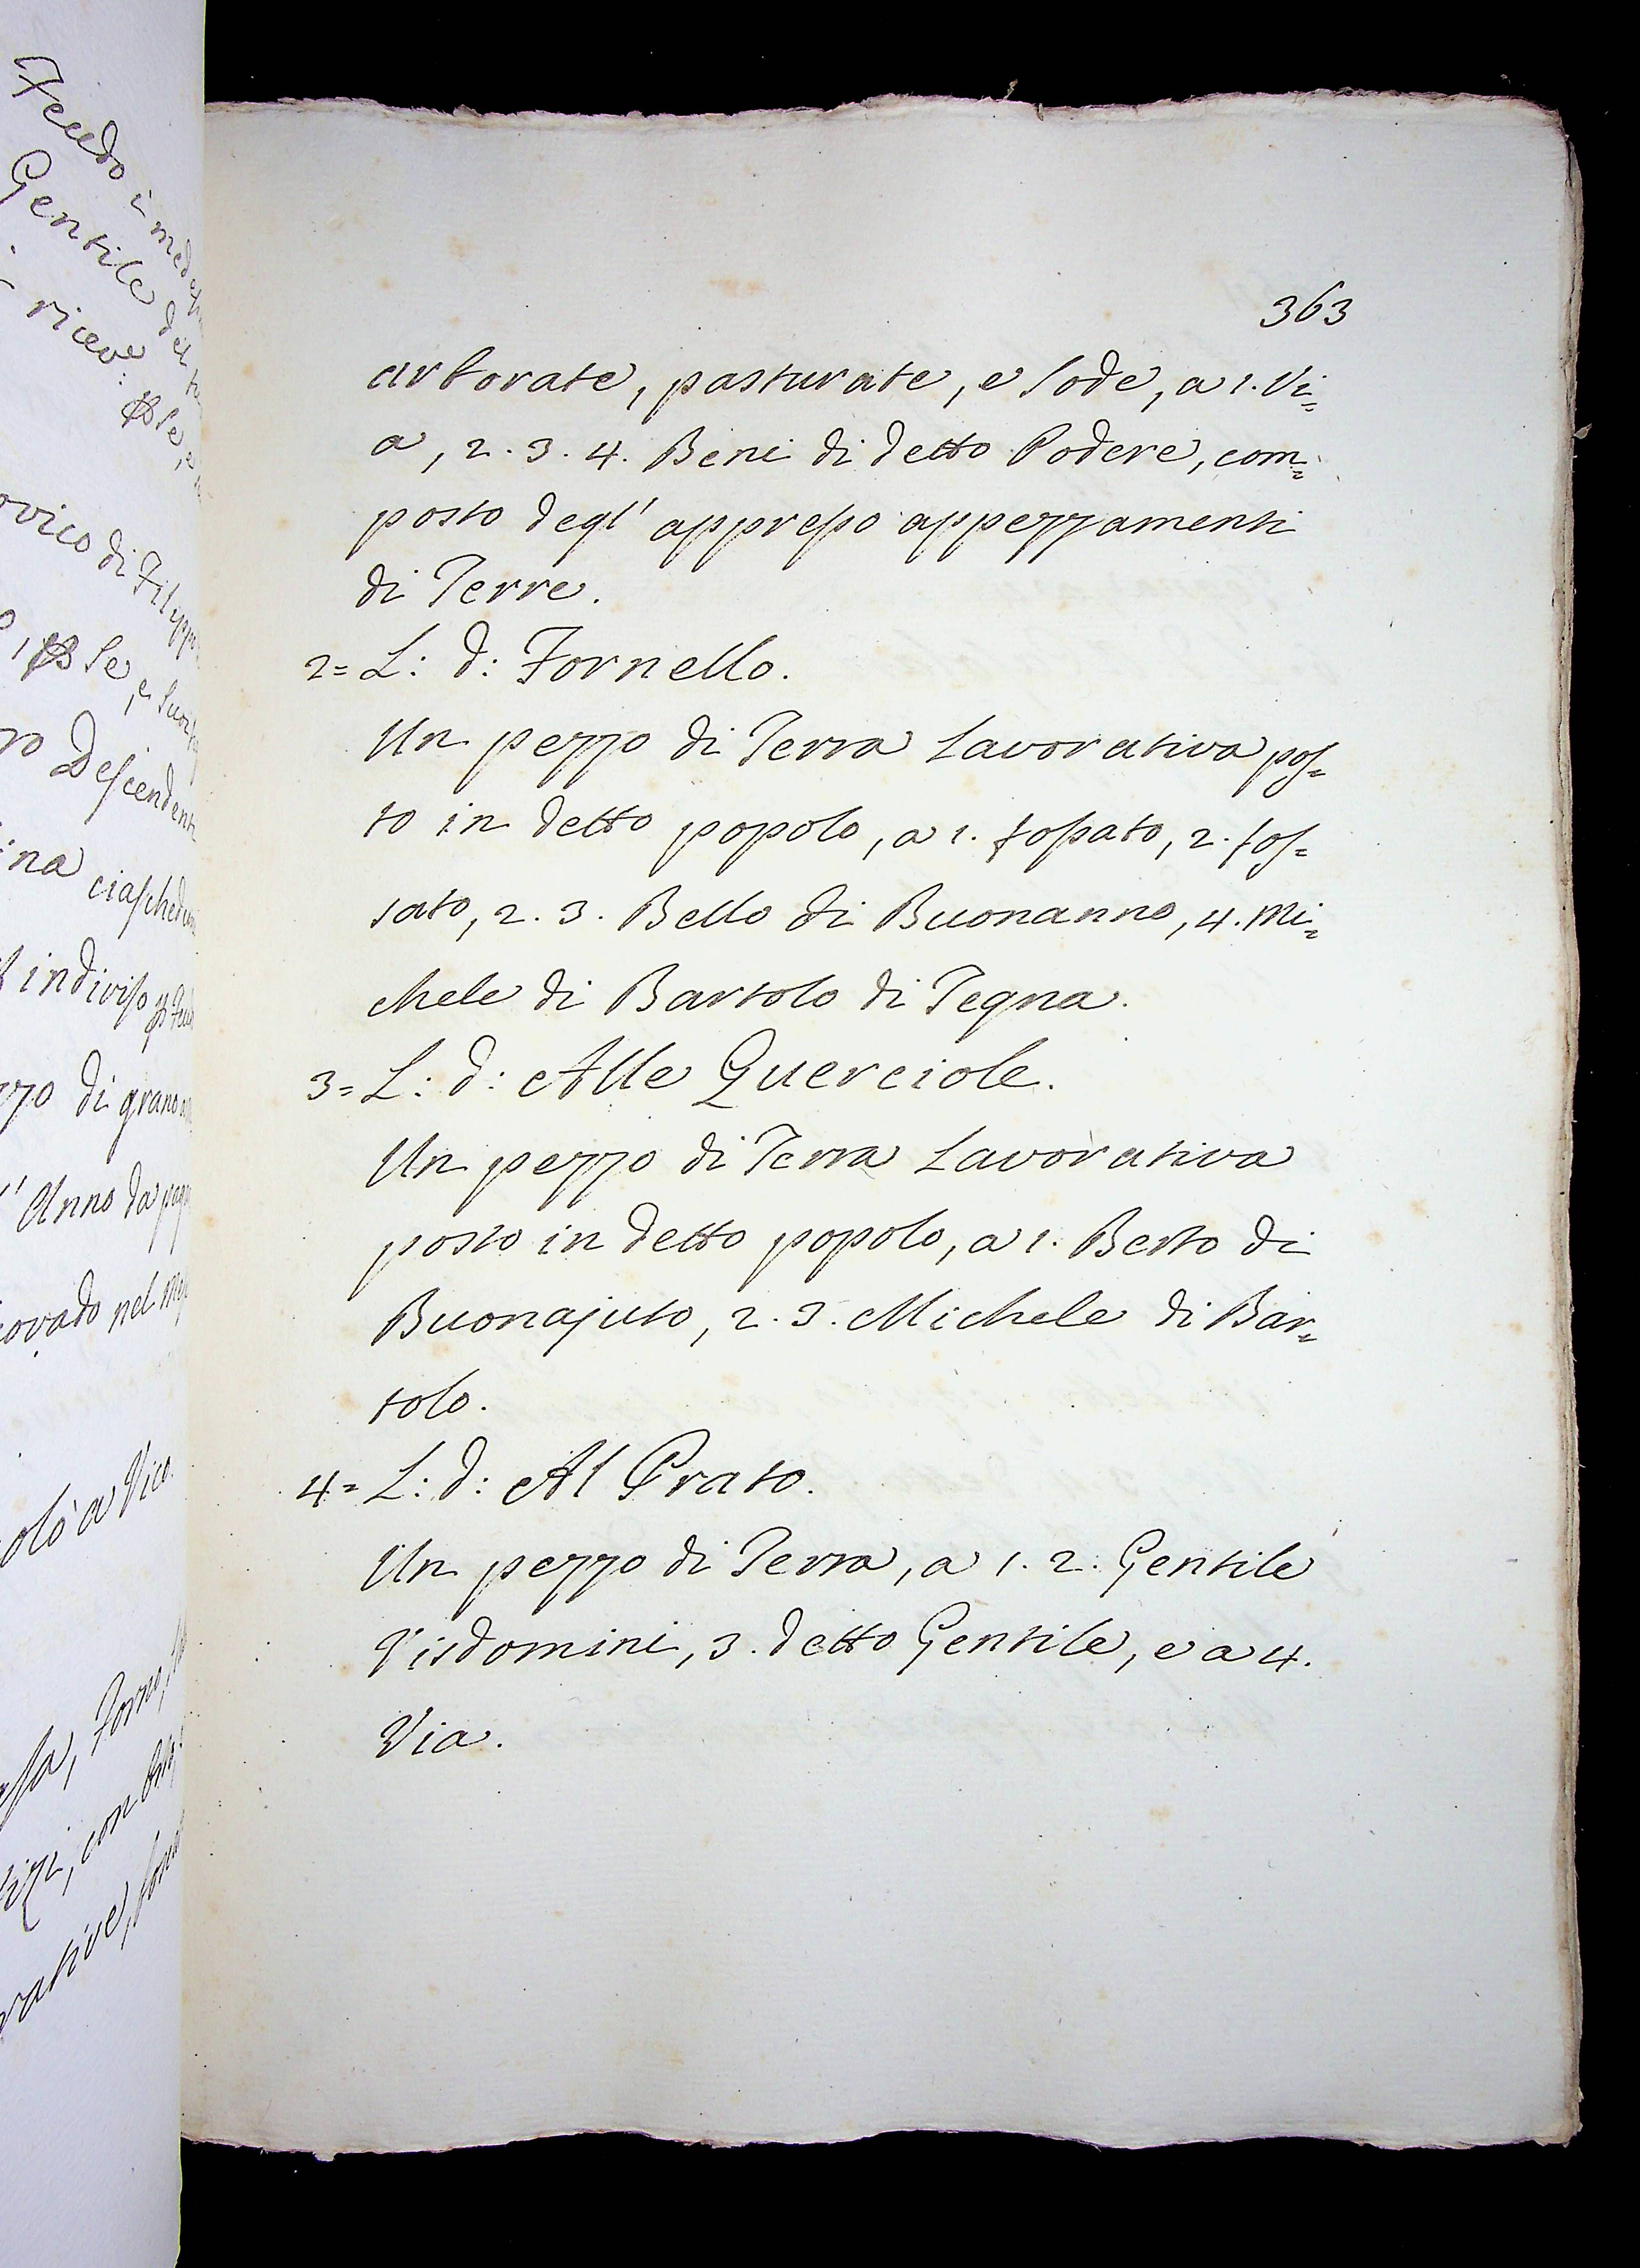 Feudo i med
Gentile del
riceve:
ovico di Filippo
Se, e Suoi
ro Descendenti
ina ciaschedun
indiviso
zzo di grano
l' Anno da
ovado nel
olò a Vico.
asa, Forno,
con
rative,
363
arborate, pasturate, e Sode, a 1. Vi=
a, 2. 3. 4. Beni di detto Podere, com=
posto degl' appresso appezzamenti
di Terre.
2= L: d: Fornello.
Un pezzo di Terra Lavorativa pos=
to in detto popolo, a 1. fossato, 2. fos=
sato, 2. 3. Bello di Buonanno, 4. Mi=
chele di Bartolo di Tegna.
3= L: d: Alle Querciole.
Un pezzo di Terra Lavorativa
posto in detto popolo, a 1. Berto di
Buonajuto, 2. 3. Michele di Bar=
tolo.
4= L: d: Al Prato.
Un pezzo di Terra, a 1. 2. Gentile
Visdomini, 3. detto Gentile, e a 4.
Via.